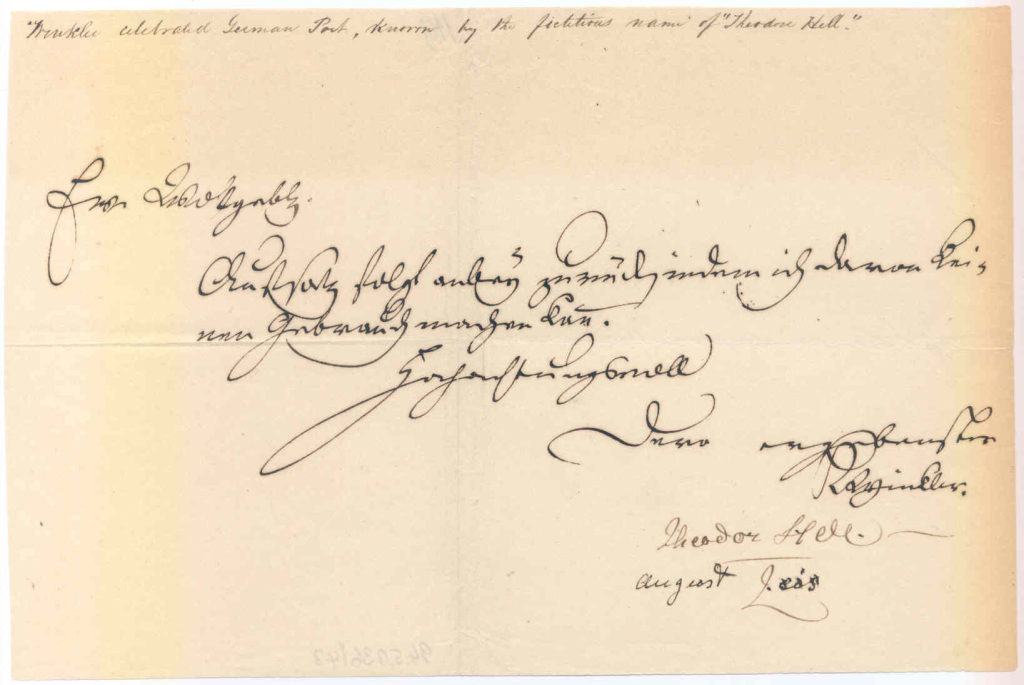 "Winkler celebrated German Poet, known by the fictitious name of "Theodore Hell."
Ew. Wohlgeb.
Aufsatz folgt anbey zurück, indem ich davon kei-
nen Gebrauch machen kan̄.
Hochachtungsvoll
Dero ergebenster
Winkler.
Theodor Hell. —
August
94.5.A36/43